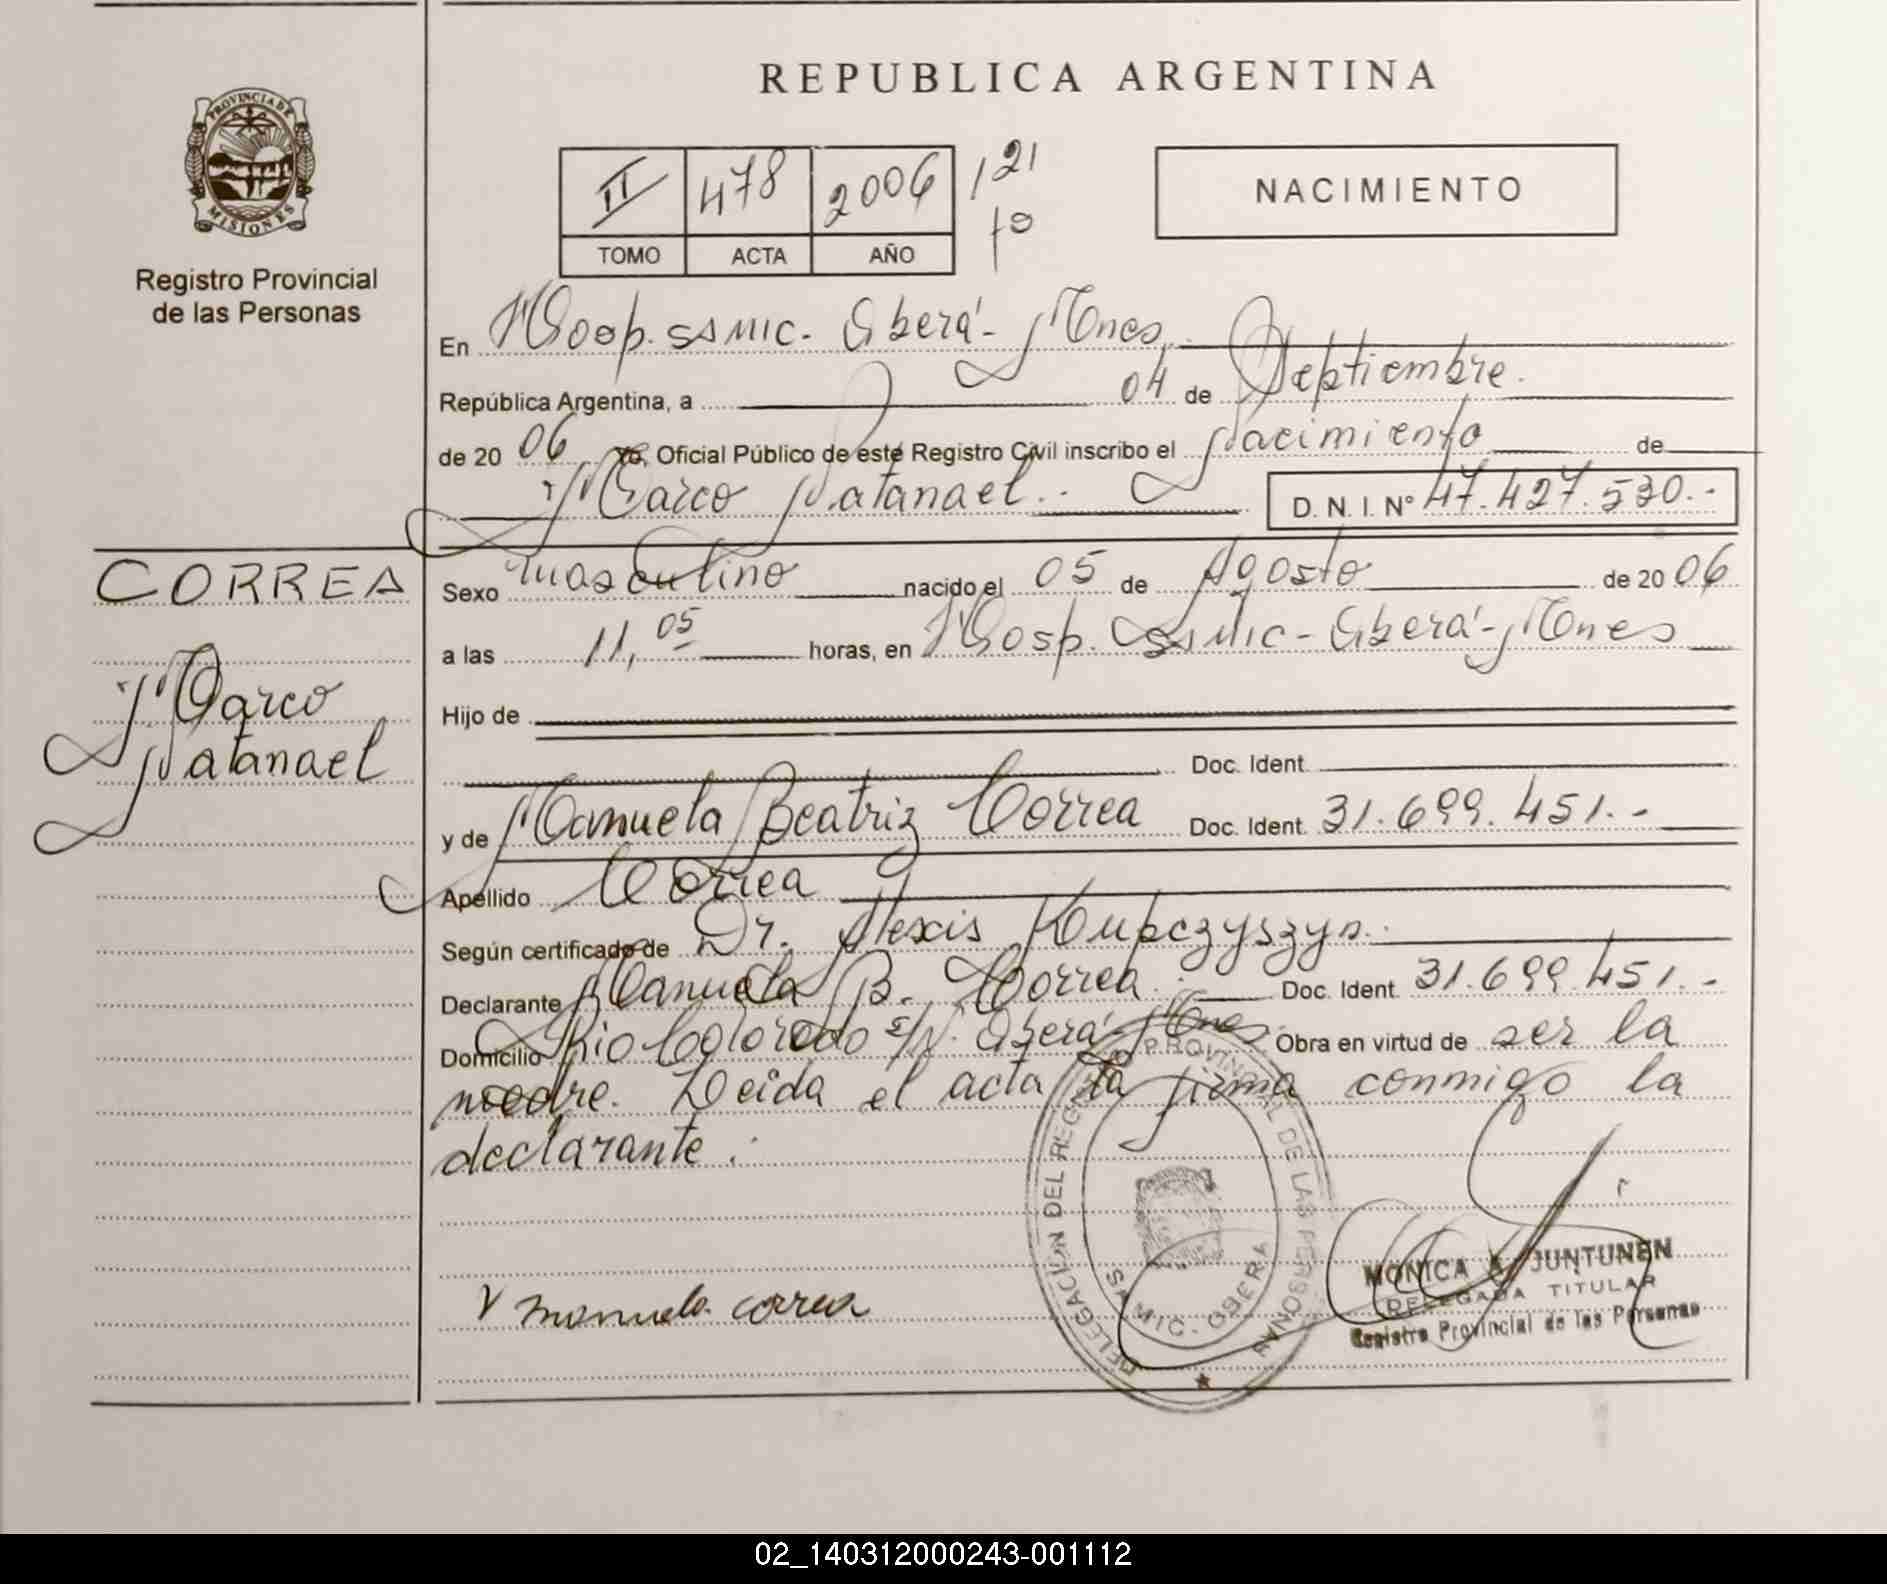 REPUBLICA ARGENTINA
PROVINCIA DE
MISIONES
Registro Provincial
de las Personas
II 478 2006 121
TOMO ACTA AÑO
NACIMIENTO
En Hosp. SAMIC. Oberá - Mnes.
República Argentina, a 04 de Septiembre.
de 20 06 Yo, Oficial Público de este Registro Civil inscribo el Nacimiento de
Marco Natanael D. N. I. Nº 47.427.530.-
CORREA
Marco
Natanael
Sexo masculino nacido el 05 de Agosto de 20 06
a las 11,05 horas, en Hosp. SAMIC - Oberá - Mnes
Hijo de
Doc. Ident.
y de Manuela Beatriz Correa Doc. Ident. 31.699.451.-
Apellido Correa
Según certificado de Dr. Alexis Kupczyszyn.
Declarante Manuela B. Correa. Doc. Ident. 31.699.451.-
Domicilio Rio Colorado s/N. Oberá - Mnes. Obra en virtud de ser la
madre. Leida el acta la firma conmigo la
declarante.
manuela correa
DELEGACION DEL REGISTRO PROVINCIAL DE LAS PERSONAS
SAMIC - OBERA
MONICA A. JUNTUNEN
DELEGADA TITULAR
Registro Provincial de las Personas
02_140312000243-001112